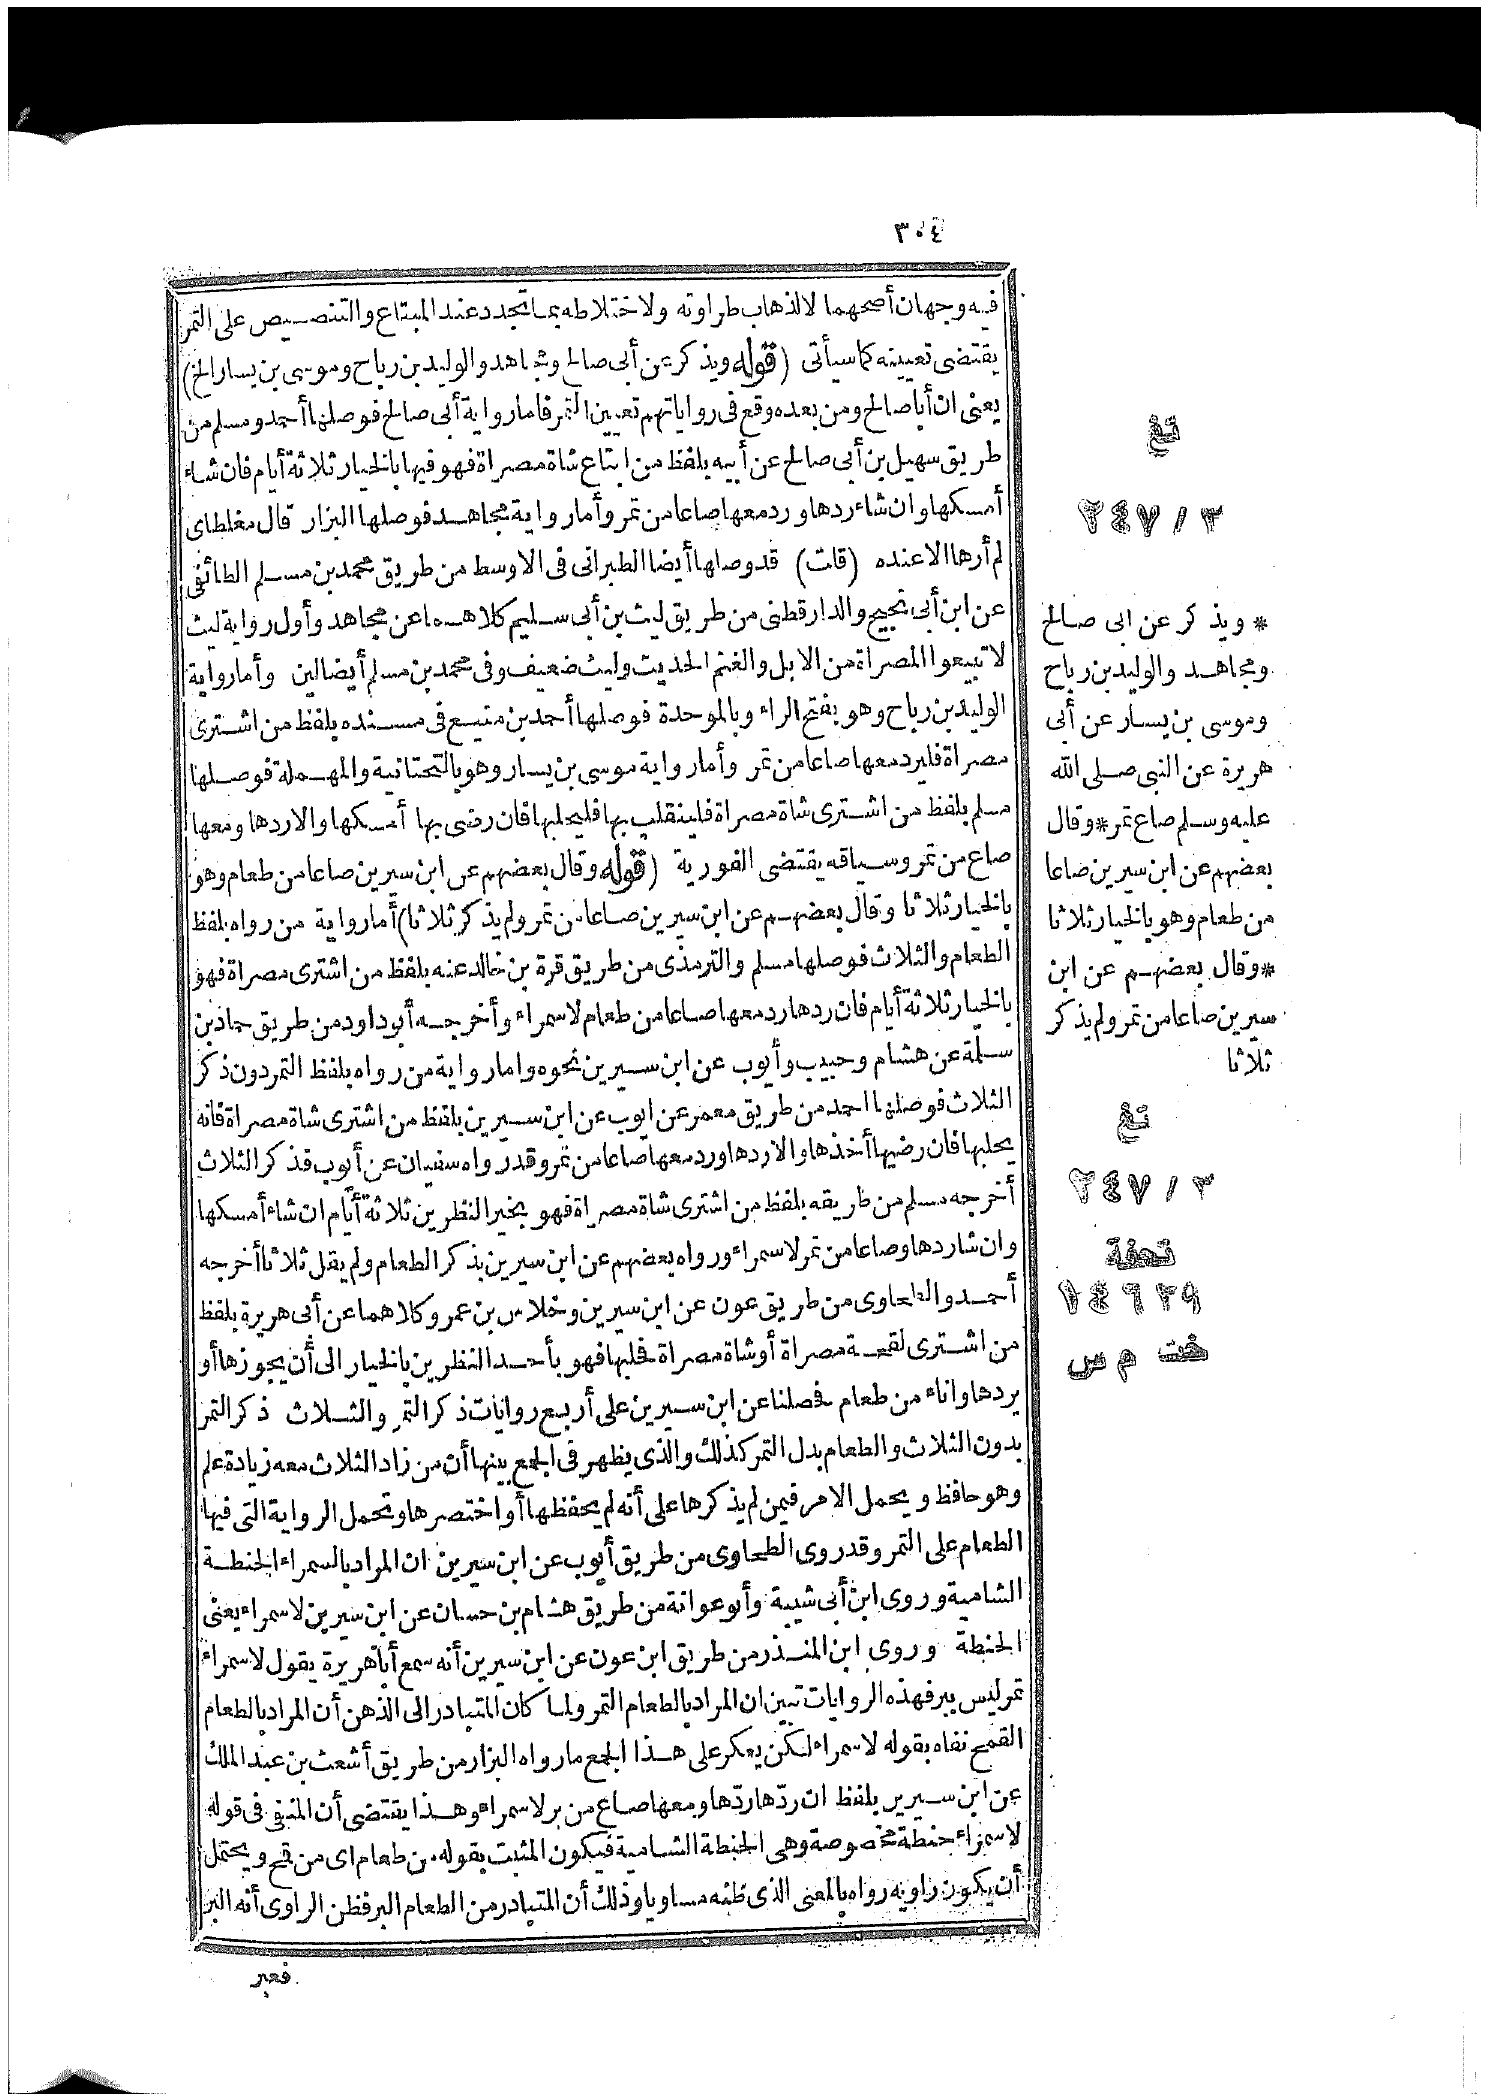 ٣٠٤
فيه وجهان أصحهما لا لذهاب طراوته ولاختلاطه بما تجدد عند المبتاع والتنصيص على التمر
يقتضى تعيينه كما سيأتى (قوله ويذكر عن أبى صالح ومجاهد والوليد بن رباح وموسى بن يسار الخ)
يعنى ان أبا صالح ومن بعده وقع فى رواياتهم تعيين التمر فاما رواية أبى صالح فوصلها أحمد ومسلم من
طريق سهيل بن أبى صالح عن أبيه بلفظ من ابتاع شاة مصراة فهو فيها بالخيار ثلاثة أيام فان شاء
أمسكها وان شاء ردها ورد معها صاعا من تمر وأما رواية مجاهد فوصلها البزار قال مغلطاى
لم أرها الا عنده (قلت) قد وصلها أيضا الطبرانى فى الاوسط من طريق محمد بن مسلم الطائفى
عن ابن أبى نجيح والدارقطنى من طريق ليث بن أبى سليم كلاهما عن مجاهد وأول رواية ليث
لا تبيعوا المصراة من الابل والغنم الحديث وليث ضعيف وفى محمد بن مسلم أيضا لين وأما رواية
الوليد بن رباح وهو بفتح الراء وبالموحدة فوصلها أحمد بن منيع فى مسنده بلفظ من اشترى
مصراة فليرد معها صاعا من تمر وأما رواية موسى بن يسار وهو بالتحتانية والمهملة فوصلها
مسلم بلفظ من اشترى شاة مصراة فلينقلب بها فليحلبها فان رضى بها أمسكها والا ردها ومعها
صاع من تمر وسياقه يقتضى الفورية (قوله وقال بعضهم عن ابن سيرين صاعا من طعام وهو
بالخيار ثلاثا وقال بعضهم عن ابن سيرين صاعا من تمر ولم يذكر ثلاثا) أما رواية من رواه بلفظ
الطعام والثلاث فوصلها مسلم والترمذى من طريق قرة بن خالد عنه بلفظ من اشترى مصراة فهو
بالخيار ثلاثة أيام فان ردها رد معها صاعا من طعام لا سمراء وأخرجه أبو داود من طريق حماد بن
سلمة عن هشام وحبيب وأيوب عن ابن سيرين نحوه واما رواية من رواه بلفظ التمر دون ذكر
الثلاث فوصلها احمد من طريق معمر عن ايوب عن ابن سيرين بلفظ من اشترى شاة مصراة فانه
يحلبها فان رضيها أخذها والا ردها ورد معها صاعا من تمر وقد رواه سفيان عن أيوب فذكر الثلاث
أخرجه مسلم من طريقه بلفظ من اشترى شاة مصراة فهو بخير النظرين ثلاثة أيام ان شاء أمسكها
وان شا ردها وصاعا من تمر لا سمراء ورواه بعضهم عن ابن سيرين بذكر الطعام ولم يقل ثلاثا أخرجه
أحمد والطحاوى من طريق عون عن ابن سيرين وخلاس بن عمرو كلاهما عن أبى هريرة بلفظ
من اشترى لقحة مصراة أو شاة مصراة فحلبها فهو بأحد النظرين بالخيار الى أن يحوزها أو
يردها واناء من طعام فحصلنا عن ابن سيرين على أربع روايات ذكر التمر والثلاث ذكر التمر
بدون الثلاث والطعام بدل التمر كذلك والذى يظهر فى الجمع بينها أن من زاد الثلاث معه زيادة علم
وهو حافظ ويحمل الامر فيمن لم يذكرها على أنه لم يحفظها أو اختصرها وتحمل الرواية التى فيها
الطعام على التمر وقد روى الطحاوى من طريق أيوب عن ابن سيرين ان المراد بالسمراء الحنطة
الشامية وروى ابن أبى شيبة وأبو عوانة من طريق هشام بن حسان عن ابن سيرين لا سمراء يعنى
الحنطة وروى ابن المنذر من طريق ابن عون عن ابن سيرين أنه سمع أبا هريرة يقول لا سمراء
تمر ليس ببر فهذه الروايات تبين ان المراد بالطعام التمر ولما كان المتبادر الى الذهن أن المراد بالطعام
القمح نفاه بقوله لا سمراء لكن يعكر على هذا الجمع ما رواه البزار من طريق أشعث بن عبد الملك
عن ابن سيرين بلفظ ان ردّها ردّها ومعها صاع من بر لا سمراء وهذا يقتضى أن المنفى فى قوله
لا سمراء حنطة مخصوصة وهى الحنطة الشامية فيكون المثبت بقوله من طعام اى من قمح ويحتمل
أن يكون راويه رواه بالمعنى الذى ظنه مساويا وذلك أن المتبادر من الطعام البر فظن الراوى أنه البر
فعبر
تغ
٣/ ٢٤٧
* ويذكر عن ابى صالح
ومجاهد والوليد بن رباح
وموسى بن يسار عن أبى
هريرة عن النبى صلى الله
عليه وسلم صاع تمر * وقال
بعضهم عن ابن سيرين صاعا
من طعام وهو بالخيار ثلاثا
* وقال بعضهم عن ابن
سيرين صاعا من تمر ولم يذكر
ثلاثا
تغ
٣/ ٢٤٧
تحفة
١٤٦٢٩
خت م س